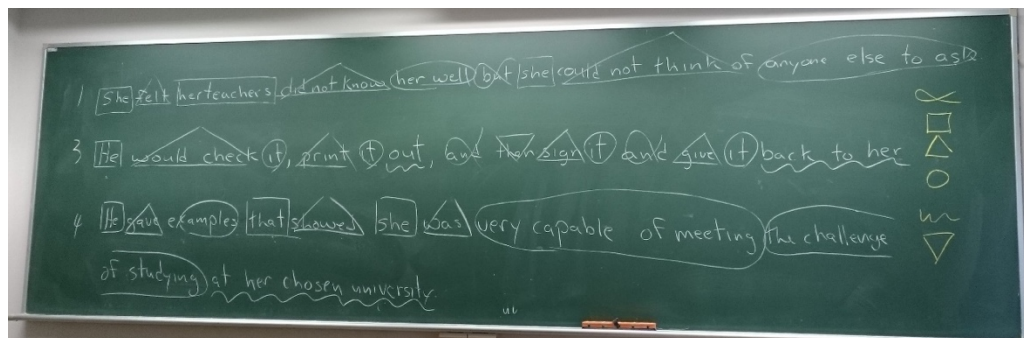 1 She felt her teachers did not know her well but she could not think of anyone else to ask
3 He would check it, print it out, and then sign it and give it back to her
4 He gave examples that showed she was very capable of meeting the challenge
of studying at her chosen university.